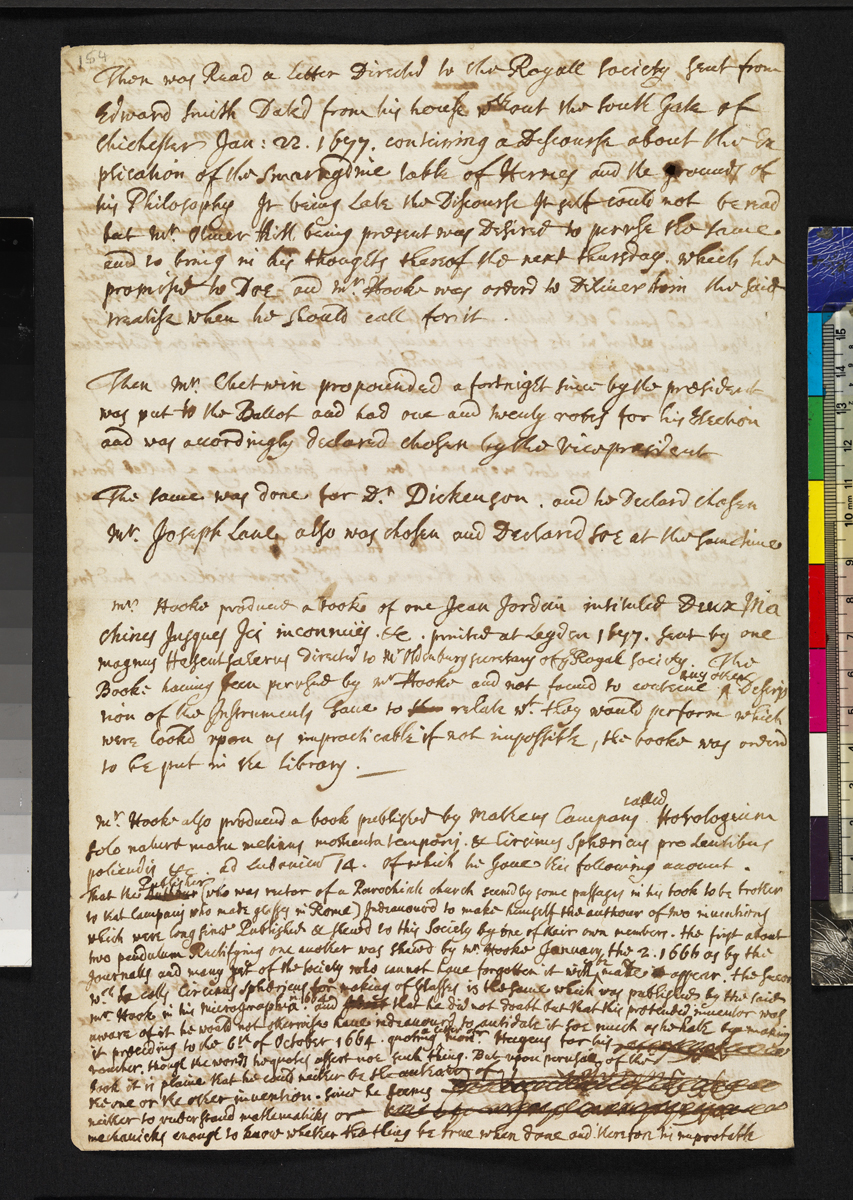 154
Then was Read a Letter Directed to the Royall Society sent from
Edward Smith Dated from his house wthout the South Gate of
Chichester Jan: 22. 1677. containing a Discourse about the Ex
plication of the Smaragdine table of Hermes and the grounds of
his Philosophy It being Late the Discourse It self could not be read
but Mr. Oliver Hill being present was Desired to peruse the same
and to bring in his thoughts thereof the next thursday. which he
promised to Doe and mr. Hooke was ordred to Deliver him the said
treatise when he should call for it.
Then mr. Chetwin propounded a fortnight since by the president
was put to the Ballot and had one and twenty votes for his Election
and was accordingly declared chosen by the vicepresident
The same was done for Dr. Dickenson. and he Declard chosen
Mr. Joseph Lane also was chosen and Declared soe at the same time
mr. Hooke produced a booke of one Jean Jordan intituled Deux Ma
chines Jusques Ici inconnües. &c. printed at Leyden 1677. sent by one
magnus directed to Mr Oldenburg secretary of ye Royall Society. The
Booke having been perused by mr Hooke and not found to containe any other Descrip
tion of the Instruments save to relate wt they would perform which
were looked upon as impracticable if not impossible, the booke was ordred
to be put in the Library.
mr. Hooke also produced a book published by Matheus Campany called Horologium
solo naturæ motu metiens momenta temporis. & Circinus Sphericus pro Lentibus
poliendis &c ad Ludovicum 14. of which he gave this following account.
That the Publisher (who was rector of a Parochiall church seemd by some passages in his book to be brother
to that Campany who made glasses in Rome) Indeavourd to make himself the authour of two inventions
which were long since Published & shewd to this Society by one of their own members. the first about
two pendulum Rectifying one another was shewd by mr. Hooke January the 2. 1666 as by the
Journalls and many of the society who cannot have forgotten it will be made appear. the second
wch he calls Circinus sphericus for making of Glasses is the same which was published by the said
mr. Hooke in his micrographia. and that he did not doubt but that this pretended inventor was
aware of it he would not otherwise have indeavourd to antidate it soe much as he hath by making
it preceding to the 6th of October 1664. quoting monr. Hugens for his
voucher, though the words he quotes assert noe such thing. But upon perusall of the
book it is plaine that he could neither be the author of
the one or the other invention. since he seems
neither to understand mathematicks or
mechanicks enough to know whether the thing be true when done and therefore his improbable